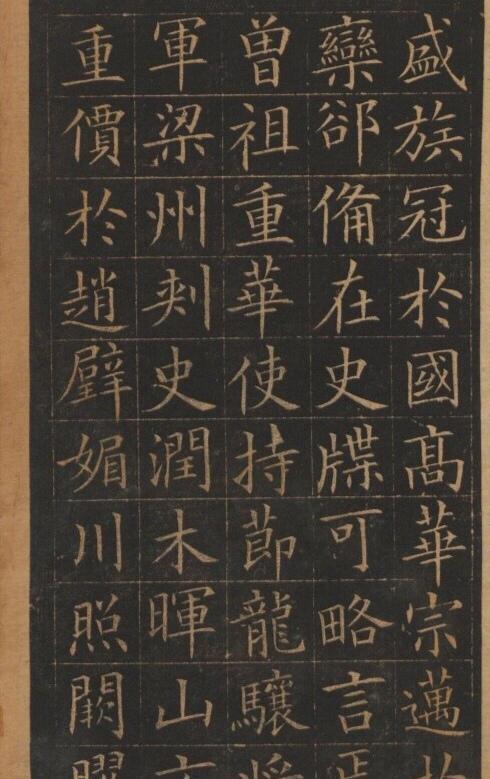 盛族冠於國髙華宗邁
欒郤備在史牒可略言
曾祖重華使持莭龍驤將
軍梁州刺史潤木暉山
重價於趙璧媚川照闕曜